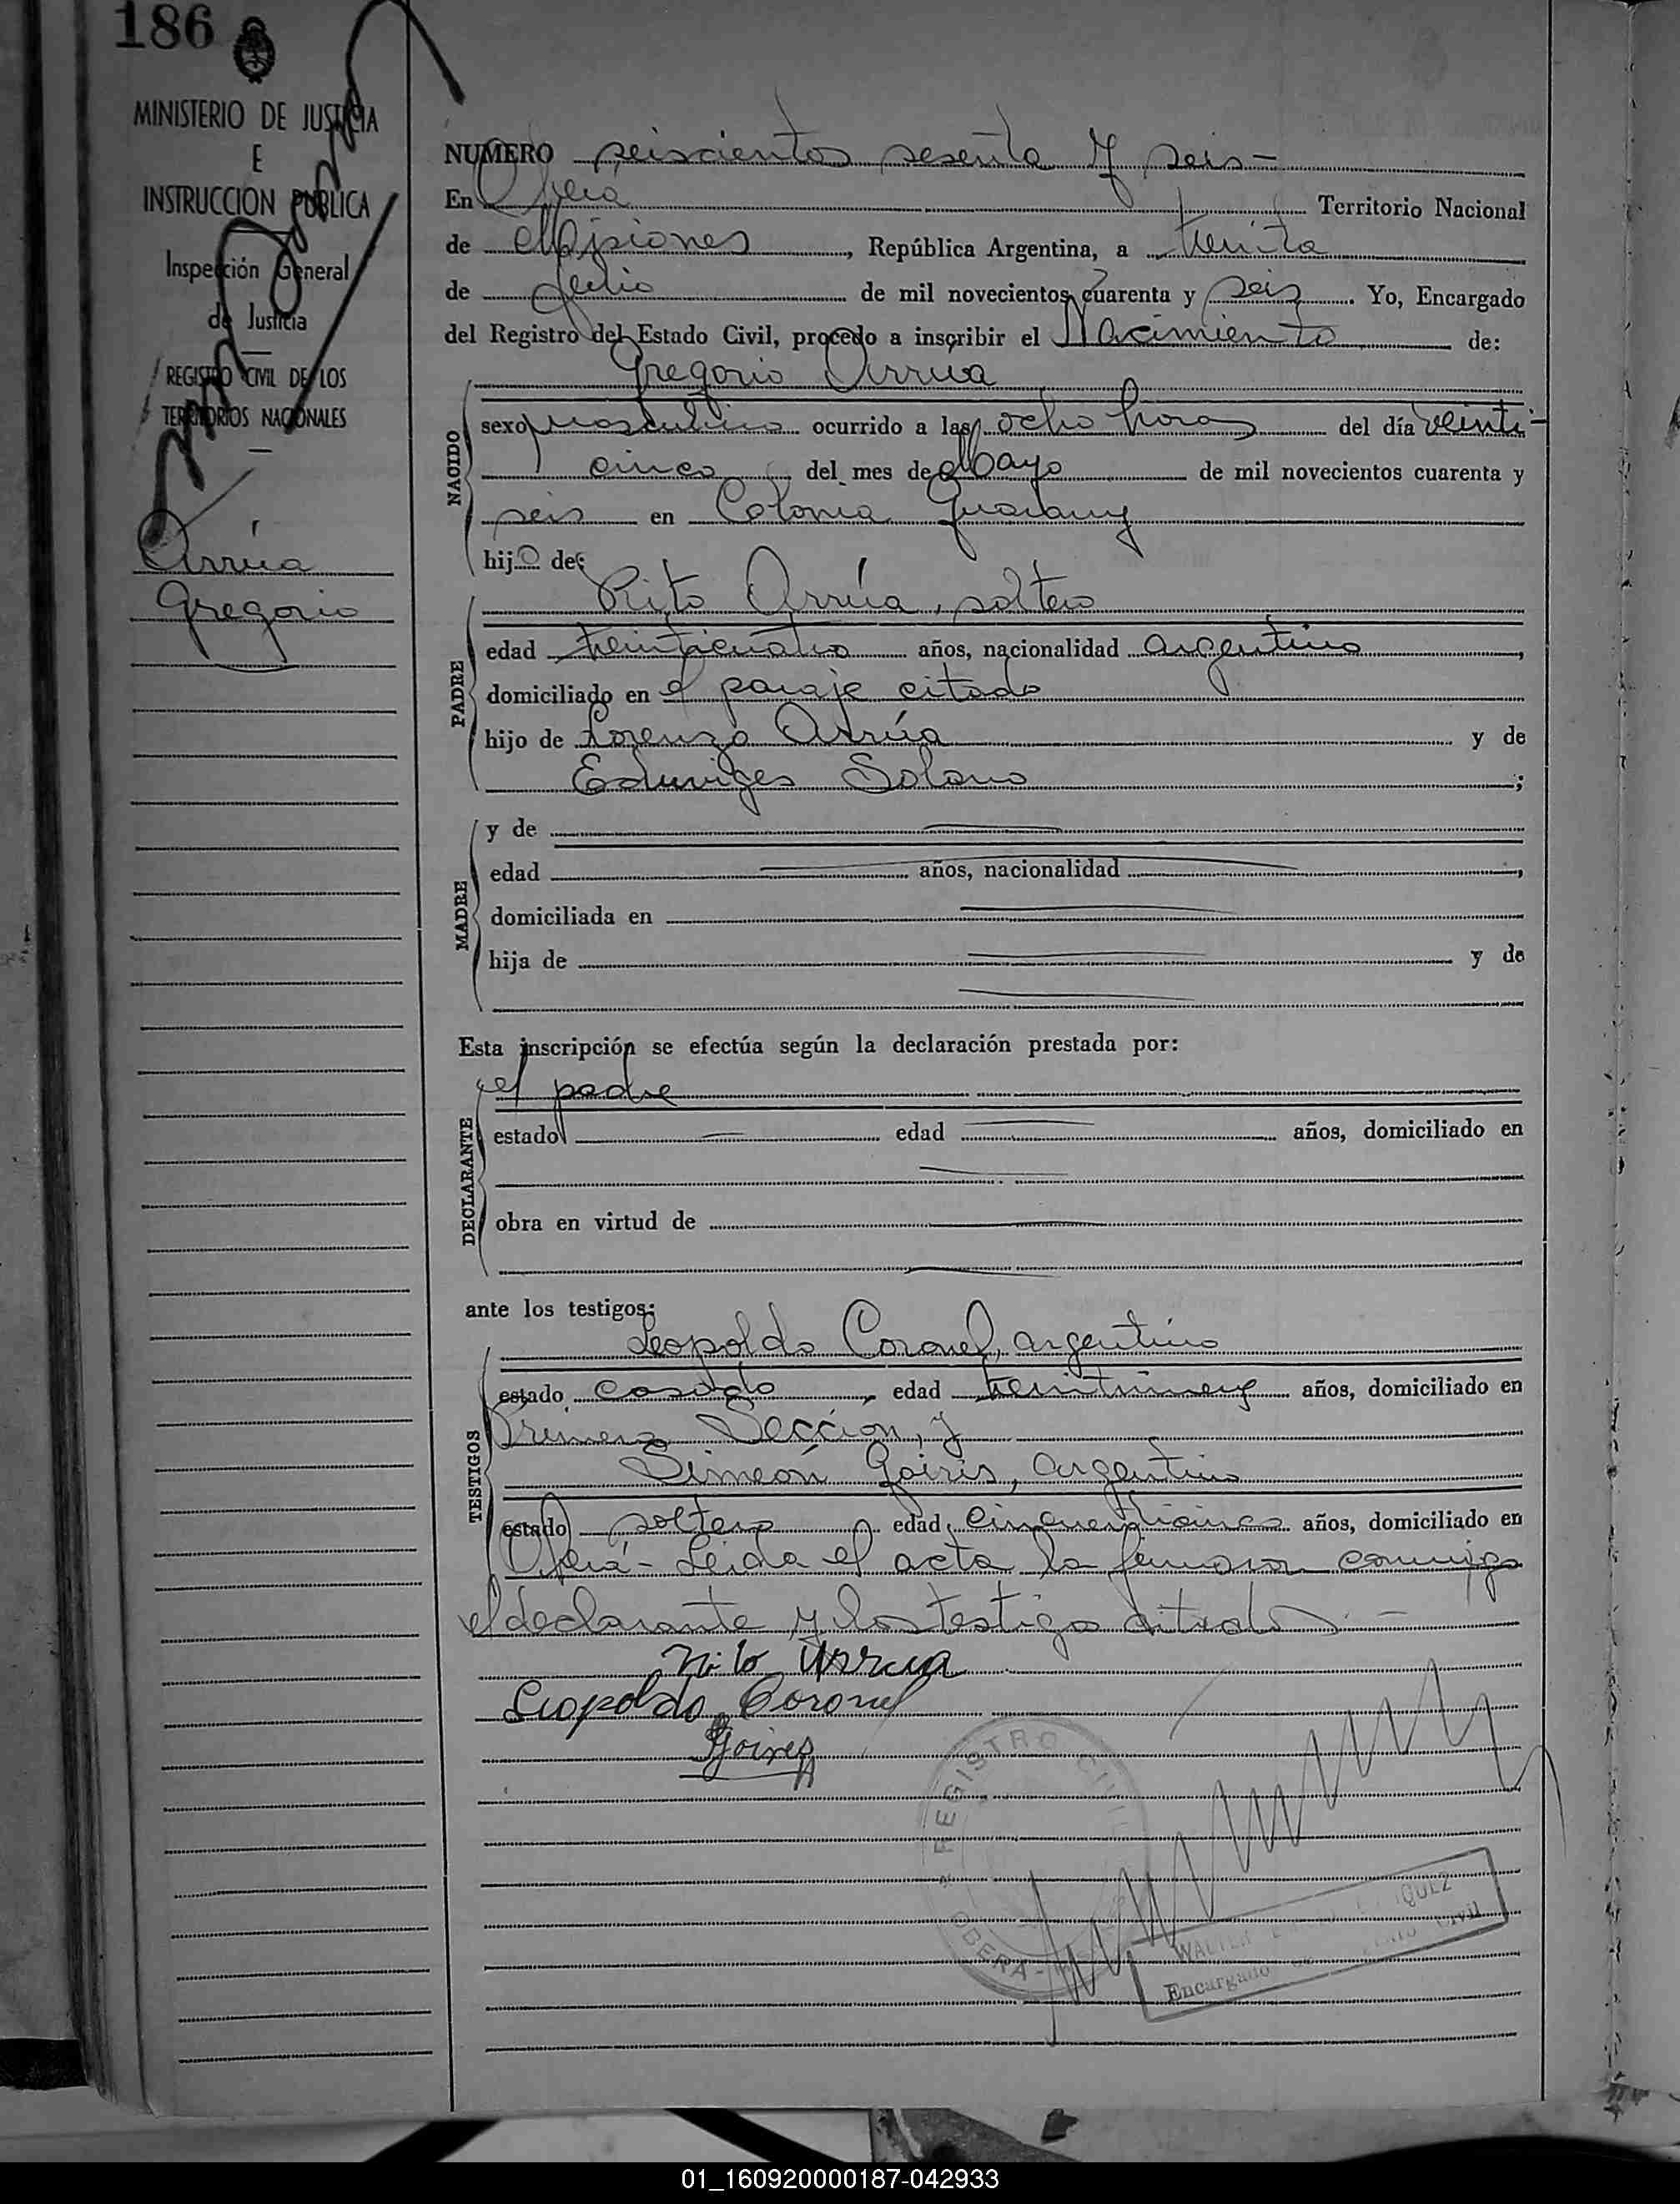 186
MINISTERIO DE JUSTICIA
E
INSTRUCCION PUBLICA
Inspección General
de Justicia
REGISTRO CIVIL DE LOS
TERRITORIOS NACIONALES
Arrúa
Gregorio
NUMERO seiscientos sesenta y seis-
En Oberá Territorio Nacional
de Misiones, República Argentina, a treinta
de Julio de mil novecientos cuarenta y seis. Yo, Encargado
del Registro del Estado Civil, procedo a inscribir el Nacimiento de:
Gregorio Arrua
NACIDO
sexo masculino ocurrido a las ocho horas del día veinti-
cinco del mes de Mayo de mil novecientos cuarenta y
seis en Colonia Guarany
hijo de:
Rito Arrúa, soltero
PADRE
edad treinticuatro años, nacionalidad argentino,
domiciliado en el paraje citado
hijo de Lorenzo Arrúa y de
Eduviges Solano;
MADRE
y de
edad años, nacionalidad,
domiciliada en
hija de y de
Esta inscripción se efectúa según la declaración prestada por:
el padre
DECLARANTE
estado edad años, domiciliado en
obra en virtud de
ante los testigos:
Leopoldo Coronel, argentino
TESTIGOS
estado casado, edad treintinueve años, domiciliado en
Primera Sección, y
Simeón Goiris, argentino
estado soltero edad cincuenticinco años, domiciliado en
Oberá- Leida el acta la firman conmigo
el declarante y los testigos citados.-
Rito Arrua
Leopoldo Coronel
SGoires
REGISTRO CIVIL
OBERA-
WALTER
Encargado Civil
01_160920000187-042933